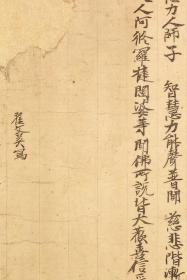 力人師子 智慧力能聲普聞 慈悲階漸
人阿脩羅揵闥婆等聞佛所說皆大歡喜信
翟文英寫